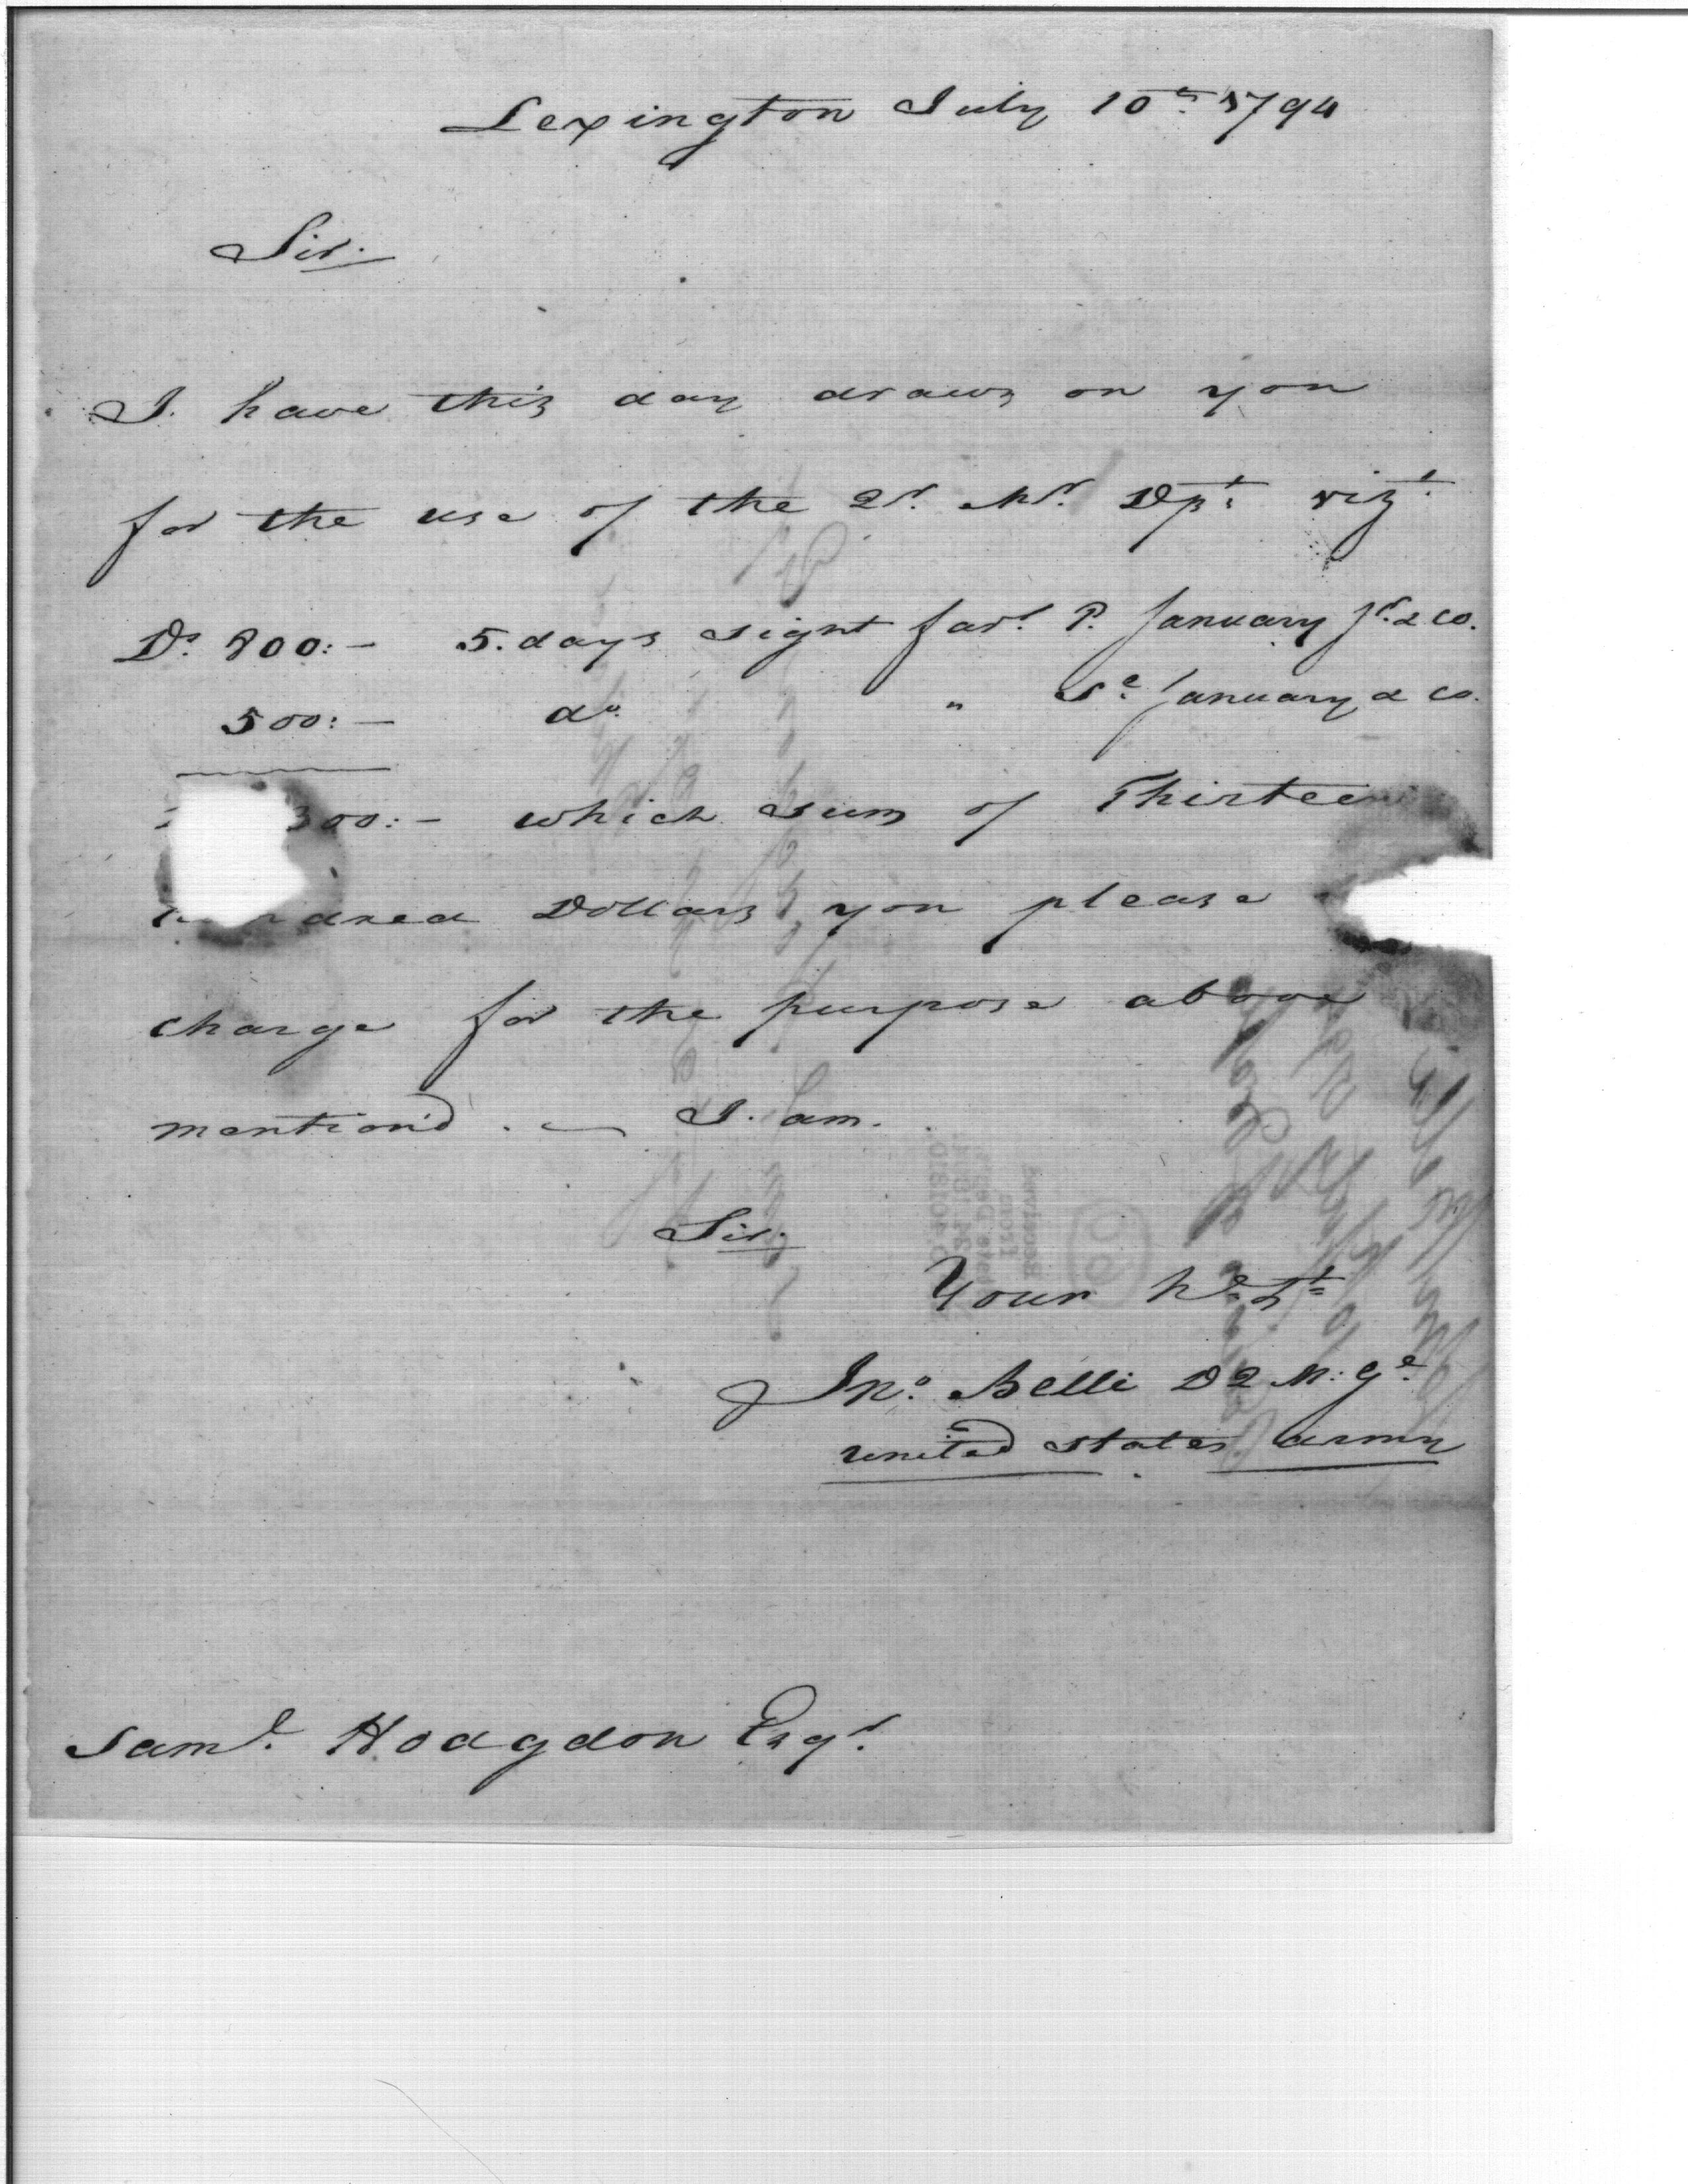 Lexington July 10th 1794
Sir.
I. have this day drawn on you
for the use of the Qr. Mr. Dpt: vizt.
Ds. 800:- 5. days sight favr. P. January Jr. & Co.
500:- do. " Se. January & Co.
300:- which sum of Thirteen
hundred Dollars you please
charge for the purpose above
mention'd. — I. am.
Sir.
Your
Jno. Belli D Q M: Ge.
United States Army
Saml. Hodgdon Esqr.